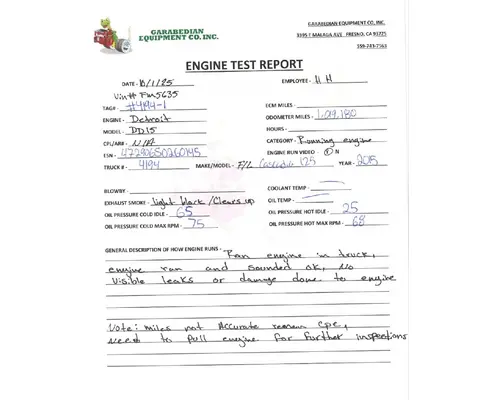 GARABEDIAN
EQUIPMENT CO. INC.
GARABEDIAN EQUIPMENT CO, INC.
3395 T MALAGA AVE FRESNO, CA 93725
559-243-7563
ENGINE TEST REPORT
DATE - 10/1/25 EMPLOYEE - H H
Vin# FM5635
TAG# #4194-1 ECM MILES -
ENGINE - Detroit ODOMETER MILES - 1,019,180
MODEL - DD15 HOURS -
CPL/AR# - N/A CATEGORY - Running engine
ESN - 472906S0260145 ENGINE RUN VIDEO - Y N
TRUCK # - 4194 MAKE/MODEL - F/L Cascadia 125 YEAR - 2015
BLOWBY - COOLANT TEMP -
EXHAUST SMOKE - light black /Clears up OIL TEMP -
OIL PRESSURE COLD IDLE - 65 OIL PRESSURE HOT IDLE - 25
OIL PRESSURE COLD MAX RPM - 75 OIL PRESSURE HOT MAX RPM - 68
GENERAL DESCRIPTION OF HOW ENGINE RUNS - Ran engine in truck,
engine ran and sounded ok, No
visible leaks or damage done to engine
Note: miles not Accurate reman cpc,
need to pull engine for further inspections